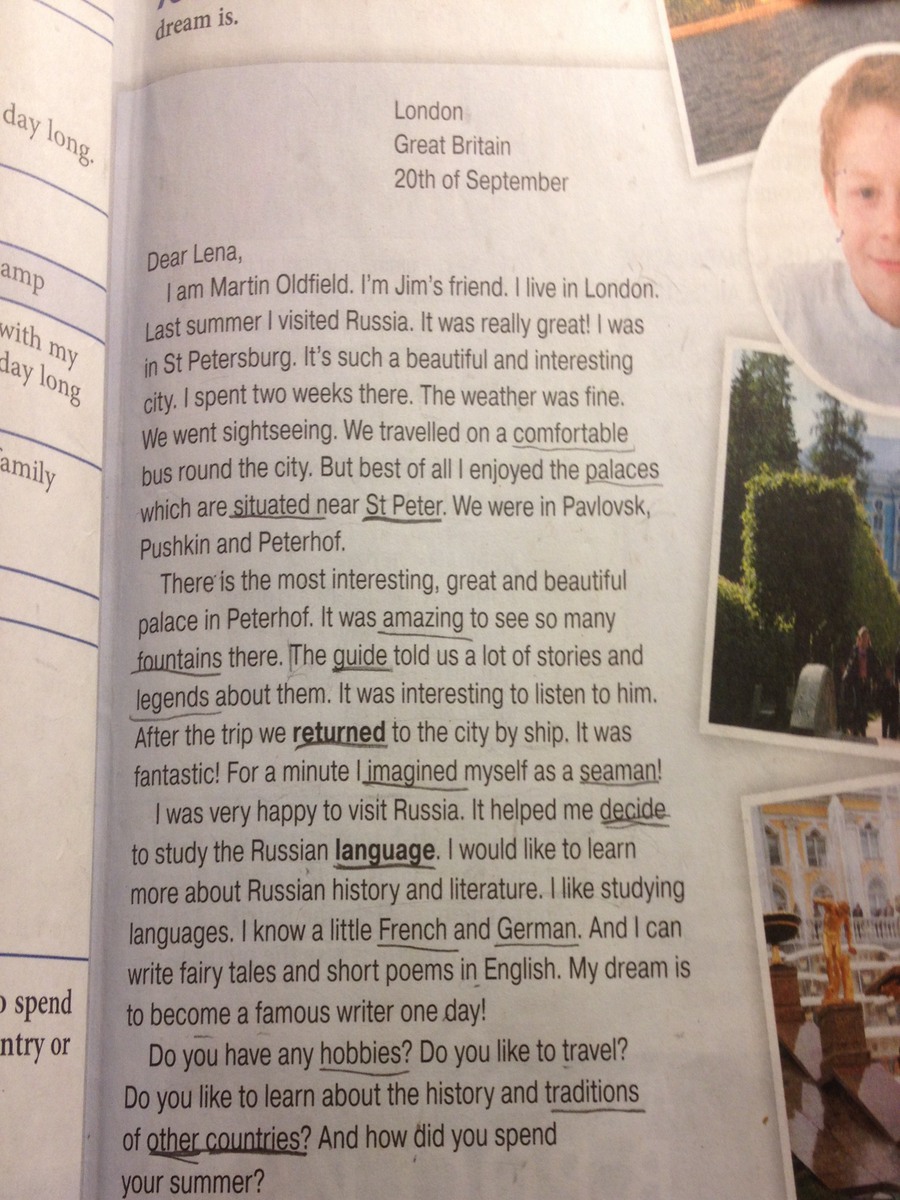 dream is.
day long.
amp
with my
day long
amily
spend
ntry or
London
Great Britain
20th of September
Dear Lena,
I am Martin Oldfield. I'm Jim's friend. I live in London.
Last summer I visited Russia. It was really great! I was
in St Petersburg. It's such a beautiful and interesting
city. I spent two weeks there. The weather was fine.
We went sightseeing. We travelled on a comfortable
bus round the city. But best of all I enjoyed the palaces
which are situated near St Peter. We were in Pavlovsk,
Pushkin and Peterhof.
There is the most interesting, great and beautiful
palace in Peterhof. It was amazing to see so many
fountains there. The guide told us a lot of stories and
legends about them. It was interesting to listen to him.
After the trip we returned to the city by ship. It was
fantastic! For a minute I imagined myself as a seaman!
I was very happy to visit Russia. It helped me decide
to study the Russian language. I would like to learn
more about Russian history and literature. I like studying
languages. I know a little French and German. And I can
write fairy tales and short poems in English. My dream is
to become a famous writer one day!
Do you have any hobbies? Do you like to travel?
Do you like to learn about the history and traditions
of other countries? And how did you spend
your summer?